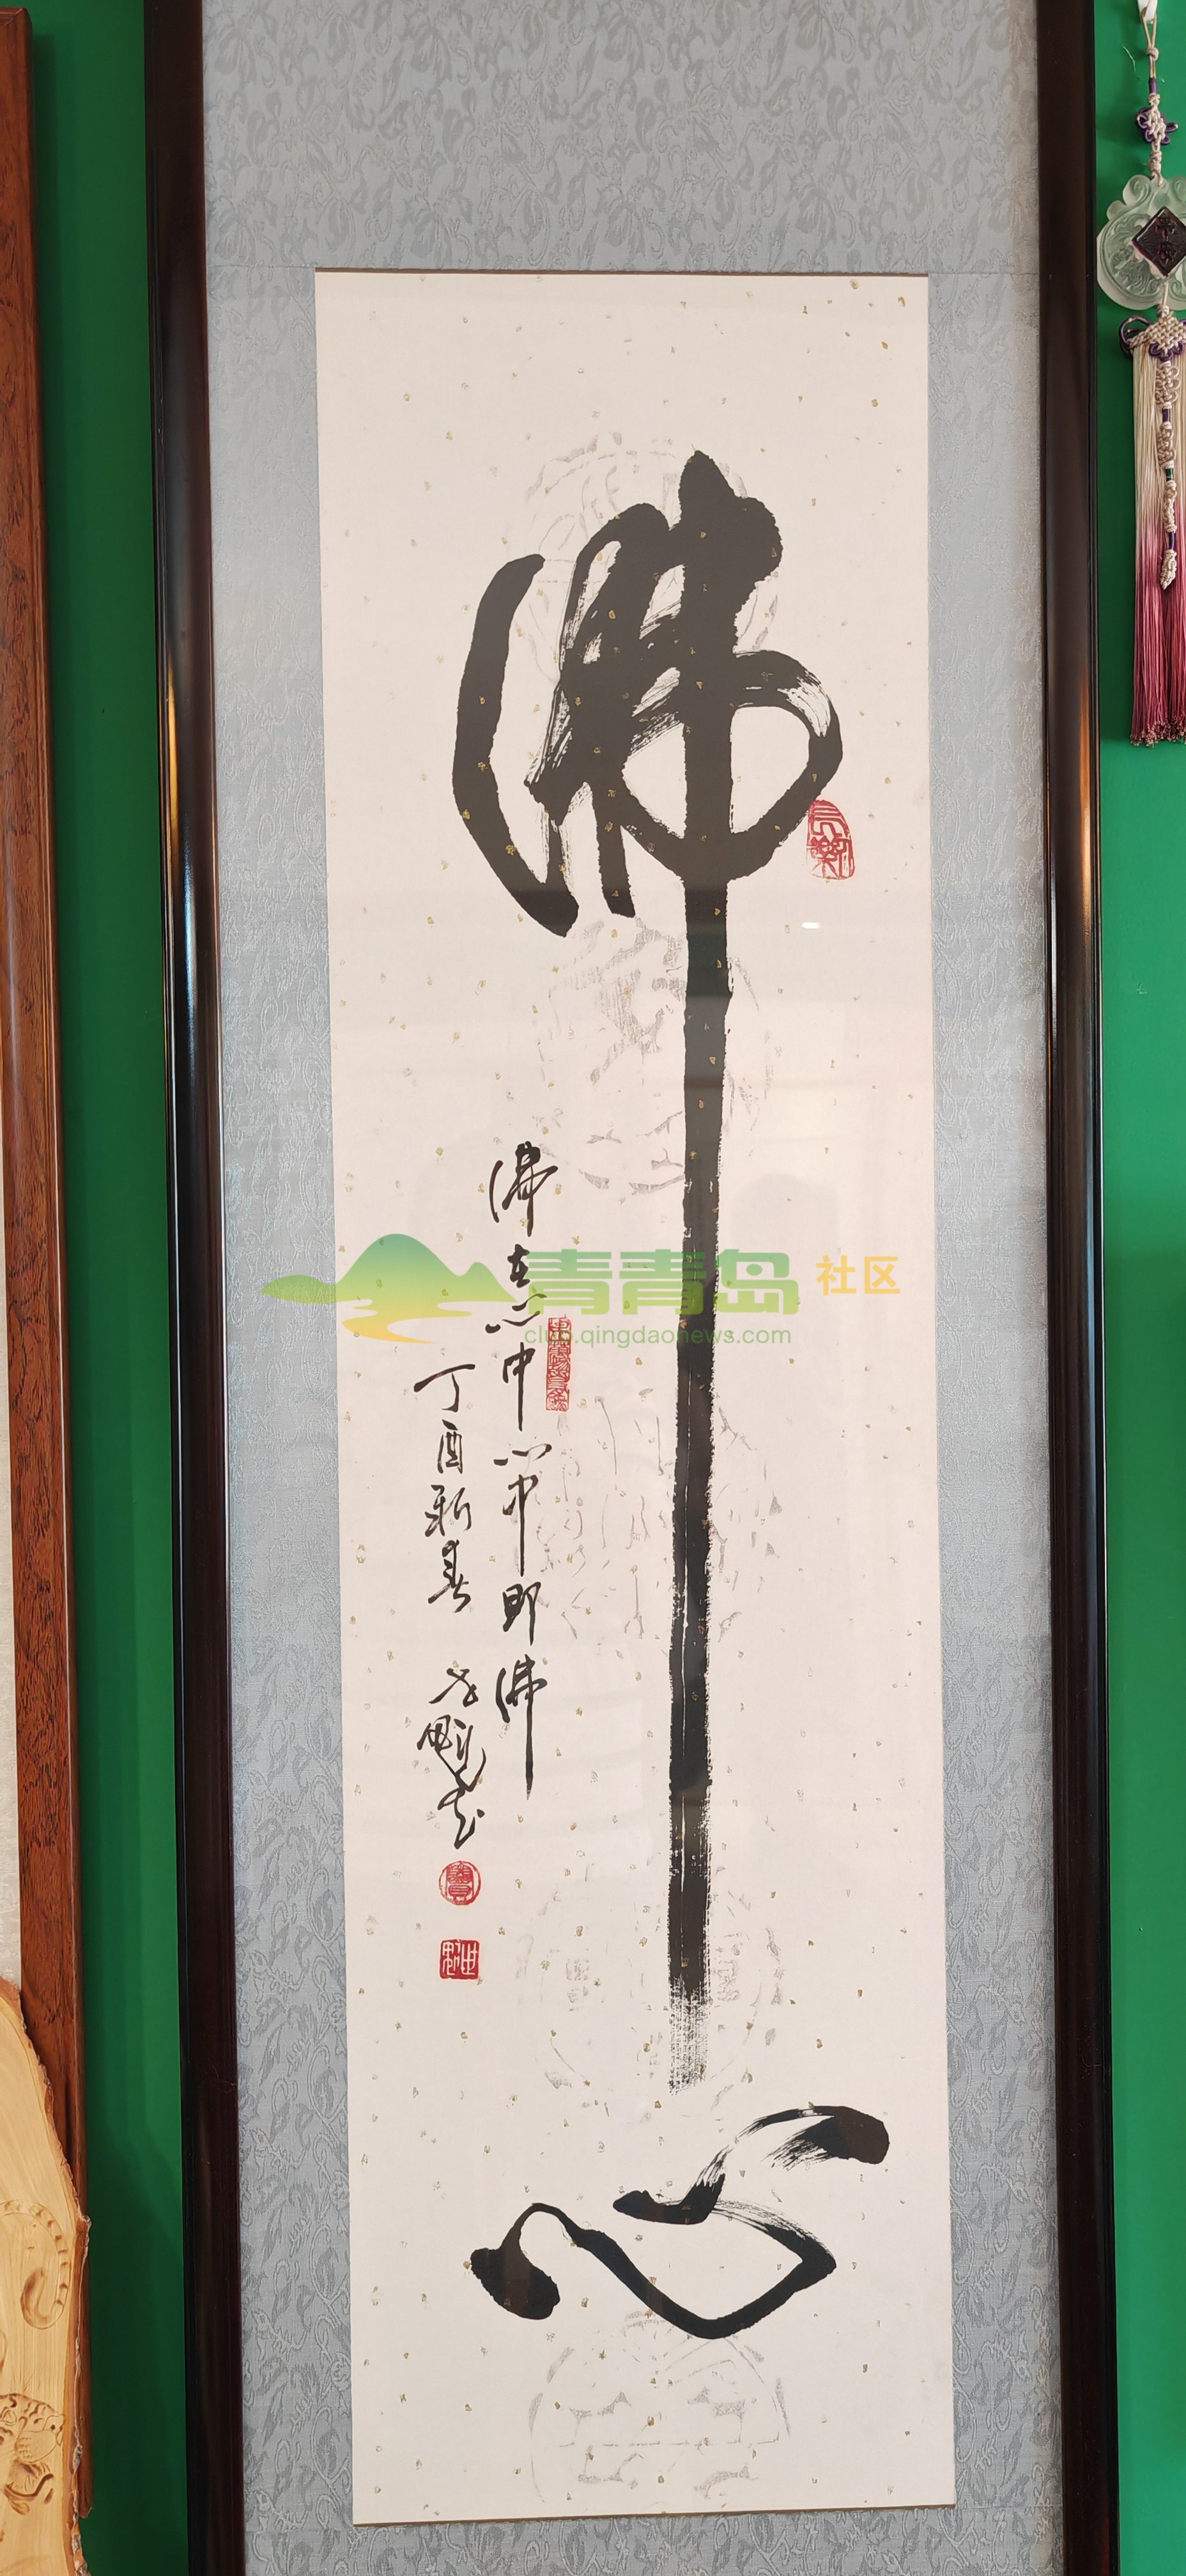 佛心
佛在心中心中即佛
丁酉新春
青青岛社区
club.qingdaonews.com